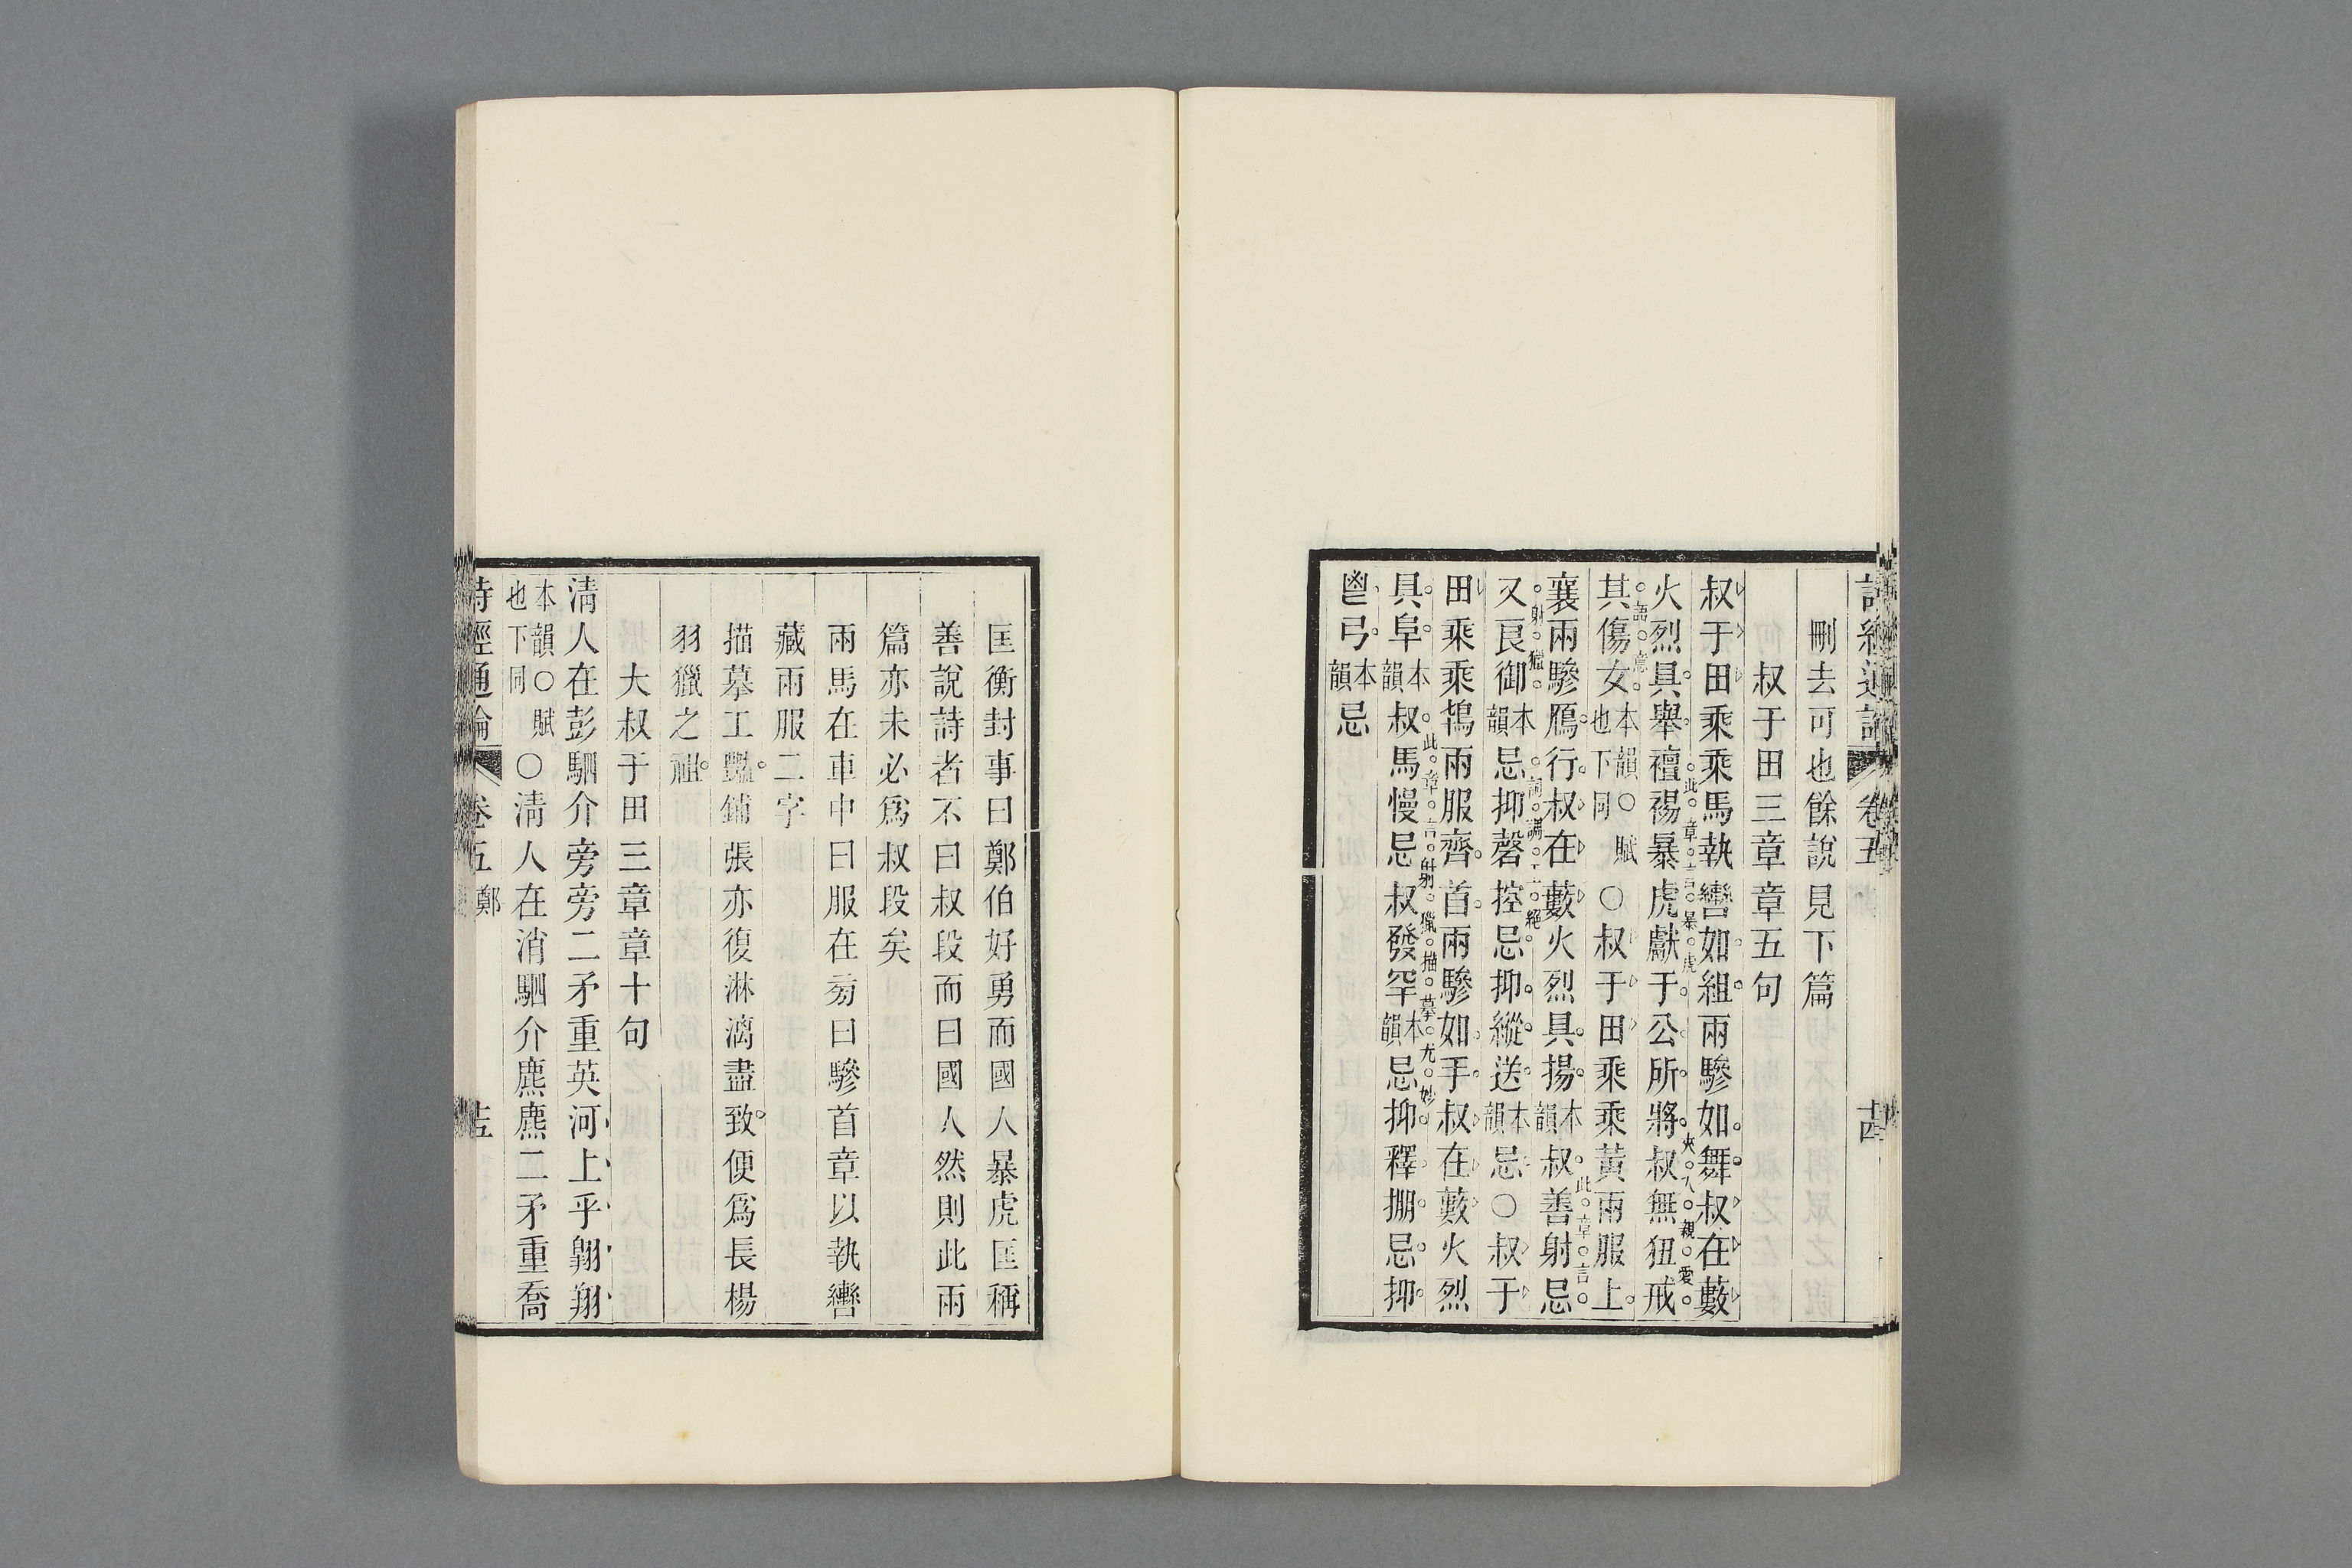 詩經通論 卷五 十四
刪去可也餘說見下篇
叔于田三章章五句
叔于田乘乘馬執轡如組兩驂如舞叔在藪
此章言暴虎 夾入親愛
火烈具舉襢裼暴虎獻于公所將叔無狃戒
語意
其傷女本韻○賦也下同○叔于田乘乘黃兩服上
襄兩驂鴈行叔在藪火烈具揚本韻叔善射忌
此章言
射獵 詞調工絕
又良御本韻忌抑磬控忌抑縱送本韻忌○叔于
田乘乘鴇兩服齊首兩驂如手叔在藪火烈
此章言射獵描摹尤妙
具阜本韻叔馬慢忌叔發罕本韻忌抑釋掤忌抑
鬯弓本韻忌
匡衡封事曰鄭伯好勇而國人暴虎匡稱
善說詩者不曰叔段而曰國人然則此兩
篇亦未必爲叔段矣
兩馬在車中曰服在旁曰驂首章以執轡
藏兩服二字
描摹工豔鋪張亦復淋漓盡致便爲長楊
羽獵之祖
大叔于田三章章十句
淸人在彭駟介旁旁二矛重英河上乎翱翔
本韻○賦也下同○淸人在消駟介麃麃二矛重喬
詩經通論 卷五 鄭 十五